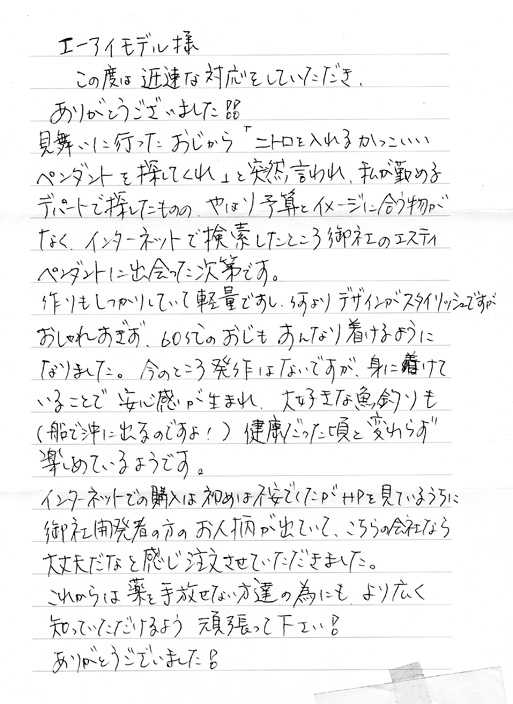 エーアイモデル様
この度は迅速な対応をしていただき、
ありがとうございました!!
見舞いに行ったおじから「ニトロを入れるかっこいい
ペンダントを探してくれ」と突然言われ、私が勤める
デパートで探したものの、やはり予算とイメージに合う物が
なく、インターネットで検索したところ御社のエスティ
ペンダントに出会った次第です。
作りもしっかりしていて軽量ですし、何よりデザインがスタイリッシュですが
おしゃれすぎず、60代のおじもすんなり着けるように
なりました。今のところ発作はないですが、身に着けて
いることで安心感が生まれ、大好きな魚釣りも
(船で沖に出るのですよ!)健康だった頃と変わらず
楽しめているようです。
インターネットでの購入は初めは不安でしたがHPを見ているうちに
御社開発者の方のお人柄が出ていて、こちらの会社なら
大丈夫だなと感じ注文させていただきました。
これからは薬を手放せない方達の為にも、より広く
知っていただけるよう頑張って下さい!
ありがとうございました!